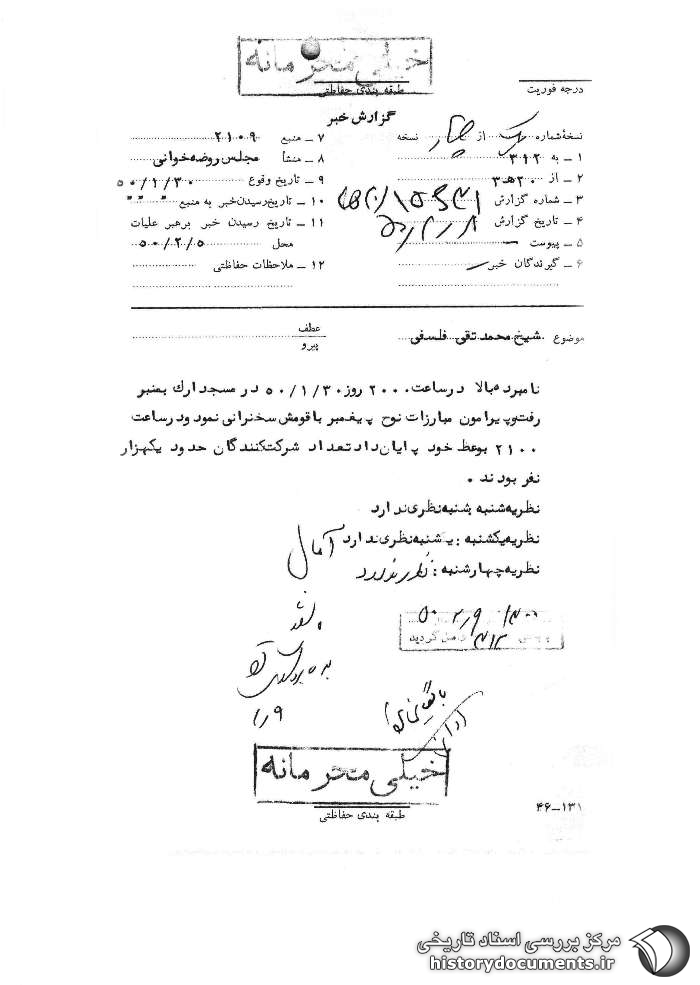 خیلی محرمانه
طبقه بندی حفاظتی
درجه فوریت
گزارش خبر
نسخهٔ شماره یک از چهار نسخه
۱ ـ به ۳۱۲
۲ ـ از ۲۰ هـ ۳
۳ ـ شماره گزارش
۴ ـ تاریخ گزارش
۵ ـ پیوست ـ
۶ ـ گیرندگان خبر ـ
۷ ـ منبع ۲۱۰۹
۸ ـ منشأ مجلس روضه خوانی
۹ ـ تاریخ وقوع ۵۰/۱/۳۰
۱۰ ـ تاریخ رسیدن خبر به منبع " " "
۱۱ ـ تاریخ رسیدن خبر برهبر عملیات
محل ۵۰/۲/۵
۱۲ ـ ملاحظات حفاظتی
موضوع شیخ محمد تقی فلسفی
عطف
پیرو
نامبرده بالا در ساعت ۲۰۰۰ روز ۵۰/۱/۳۰ در مسجد ارك بمنبر
رفت و پیرامون مبارزات نوح پیغمبر با قومش سخنرانی نمود و در ساعت
۲۱۰۰ بوعظ خود پایان داد تعداد شرکت کنندگان حدود یکهزار
نفر بودند .
نظریه شنبه شنبه نظری ندارد
نظریه یکشنبه : یکشنبه نظری ندارد آمال
نظریه چهارشنبه : نظری ندارد
۵۰
۳۱۲ واصل گردید
بایگانی شود
خیلی محرمانه
طبقه بندی حفاظتی
۴۶-۱۳۱
مرکز بررسی اسناد تاریخی
historydocuments.ir